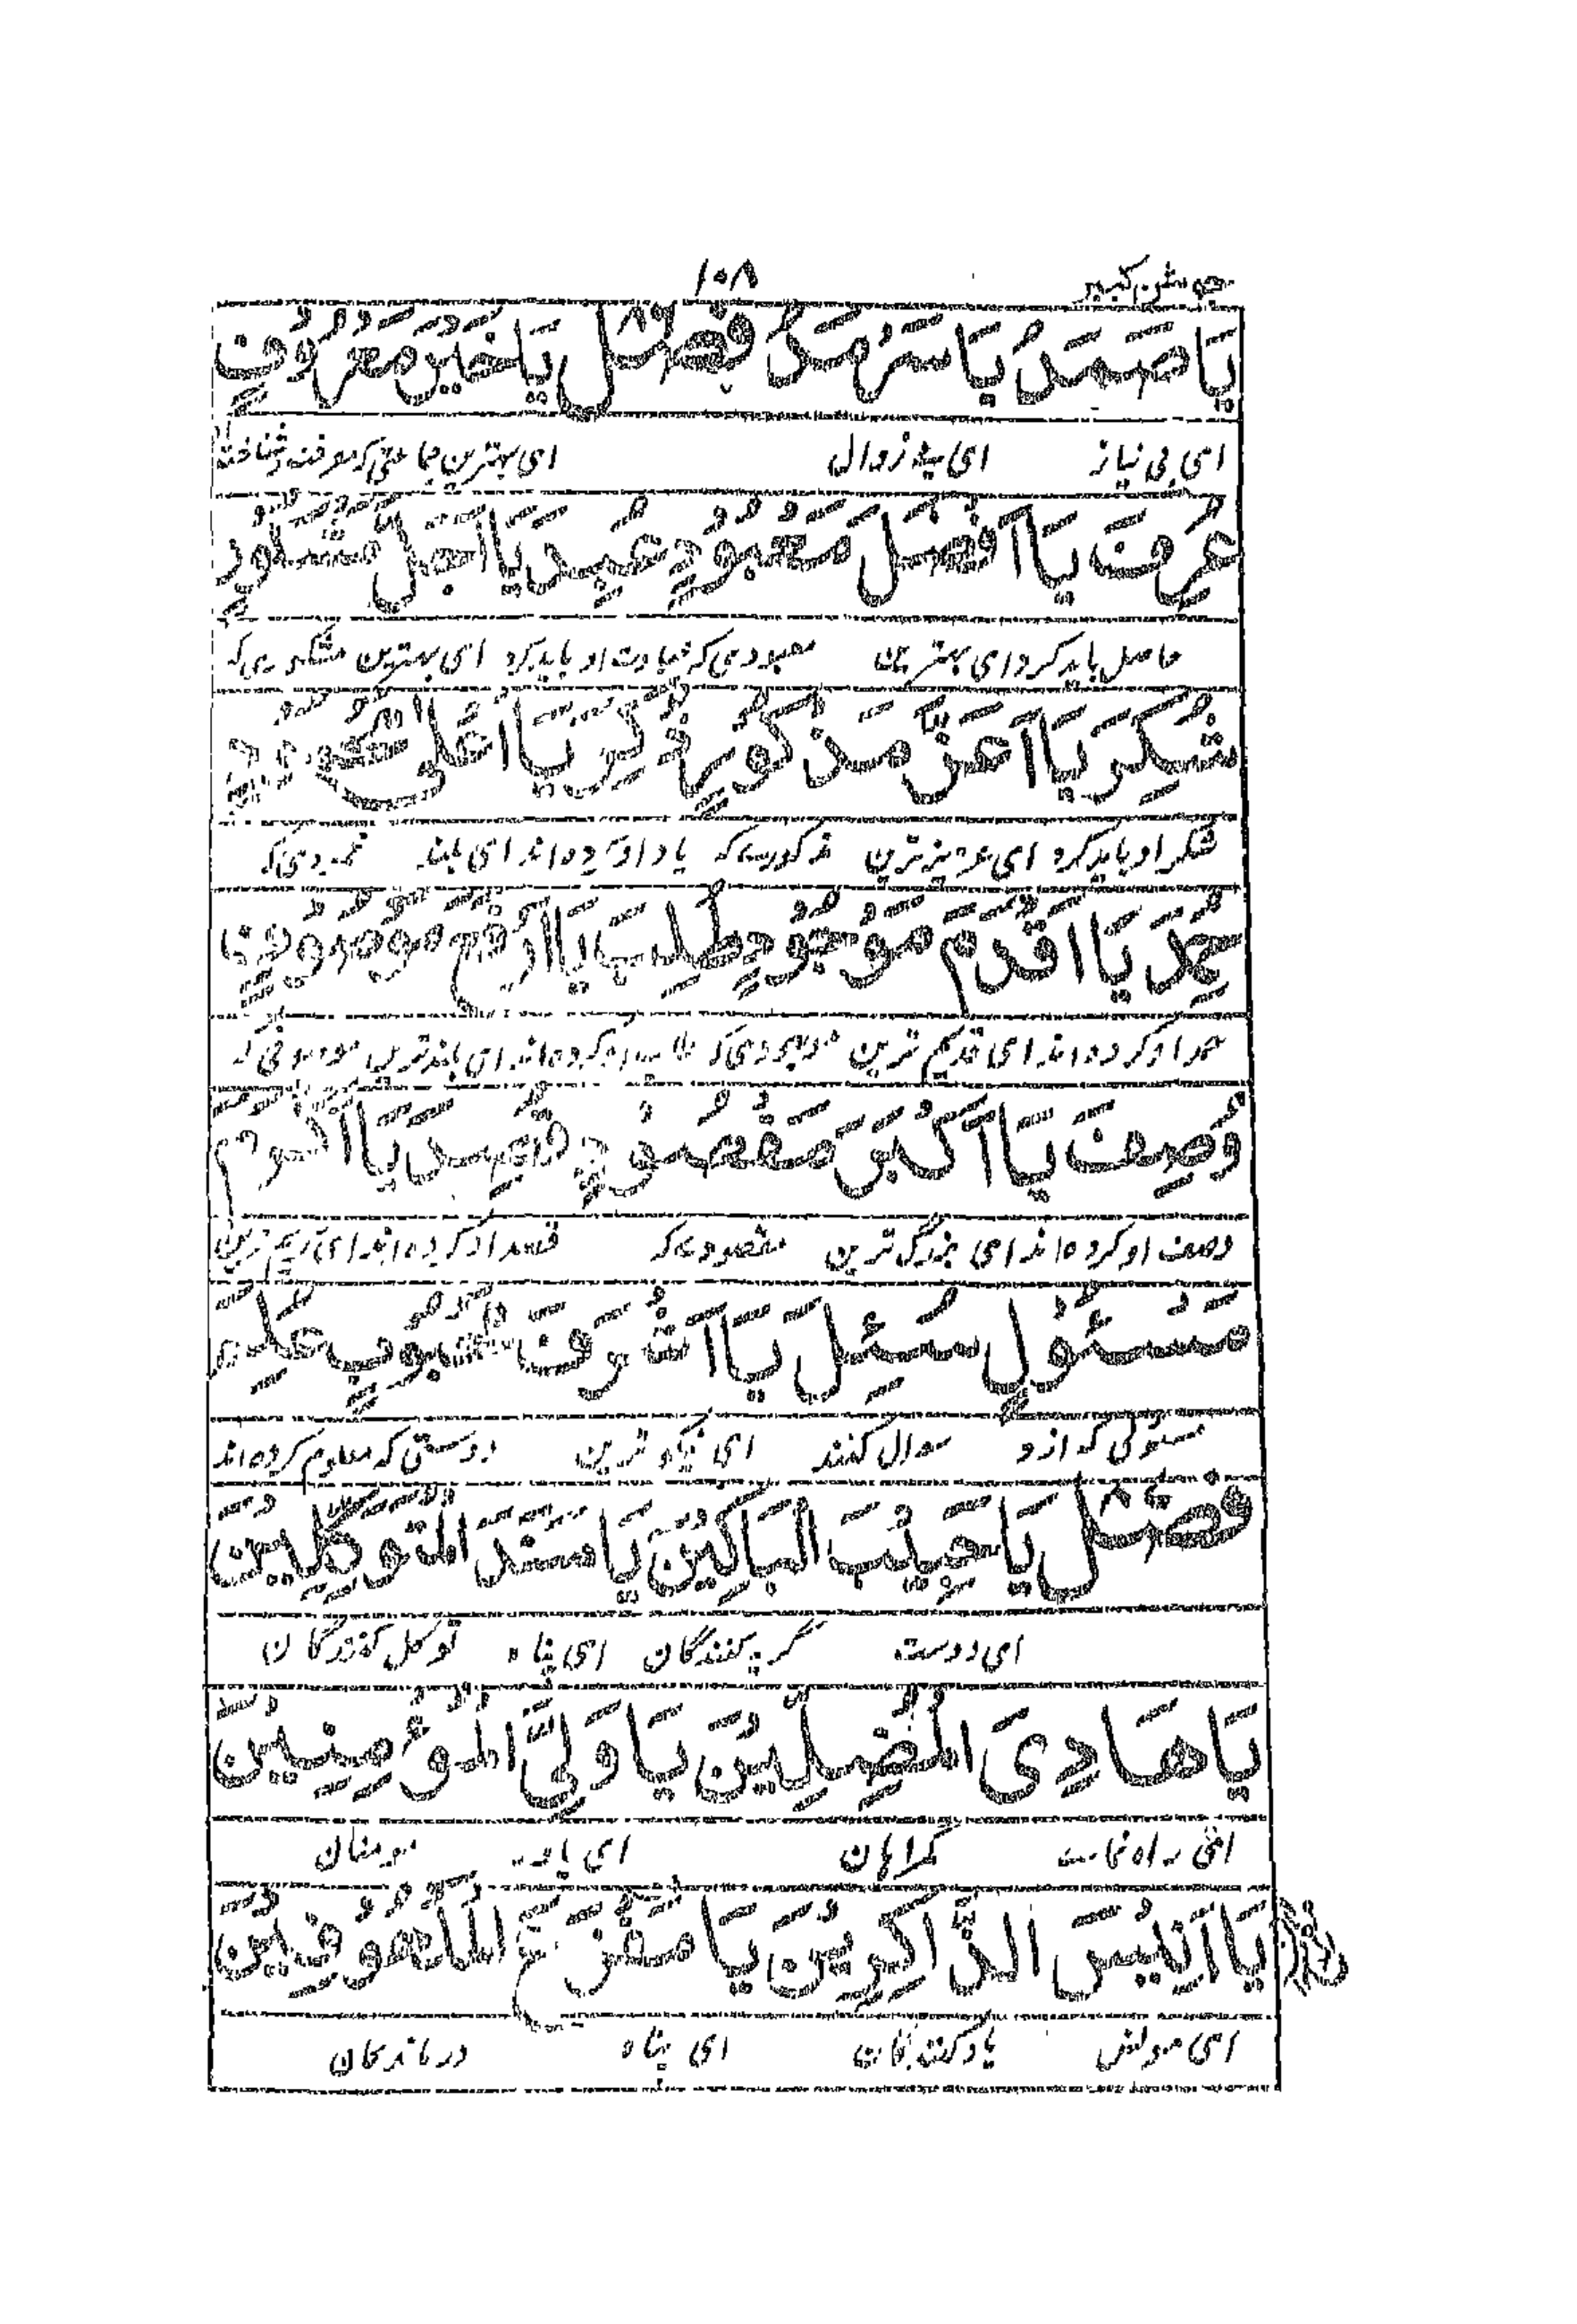 جوشن کبیر ۱۰۸
يَا صَمَدُ يَا سَرْمَدُ فصل يَا خَيْرَ مَعْرُوفٍ
ای بی نیاز ای بی زوال ای بهترین
عُرِفَ يَا اَفْضَلَ مَعْبُودٍ عُبِدَ يَا اَجَلَّ مَشْكُورٍ
حاصل باید کرد ای بهترین معبودی که عبادت او باید کرد ای بهترین مشکوری که
شُكِرَ يَا اَعَزَّ مَذْكُورٍ ذُكِرَ يَا اَعْلٰى مَحْمُودٍ
شکر او باید کرد ای عزیز ترین مذکوری که یاد او کرده اند ای بلند محمودی که
حُمِدَ يَا اَقْدَمَ مَوْجُودٍ طُلِبَ يَا اَرْفَعَ مَوْصُوفٍ
حمد او کرده اند ای قدیم ترین موجودی که طلب او کرده اند ای بلندترین موصوفی که
وُصِفَ يَا اَكْبَرَ مَقْصُودٍ قُصِدَ يَا اَكْرَمَ
وصف او کرده اند ای بزرگ ترین مقصودی که قصد او کرده اند ای کریم ترین
مَسْئُولٍ سُئِلَ يَا اَشْرَفَ مَحْبُوبٍ عُلِمَ
مسئولی که ازو سوال کنند ای نیکو ترین دوستی که معلوم کرده اند
فصل يَا حَبِيبَ الْبَاكِينَ يَا سَنَدَ الْمُتَوَكِّلِينَ
ای دوست گریه کنندگان ای پناه توکل کنندگان
يَا هَادِيَ الْمُضِلِّينَ يَا وَلِيَّ الْمُؤْمِنِينَ
ای راه نمای گمراهان ای یار مومنان
يَا اَنِيسَ الذَّاكِرِينَ يَا مَفْزَعَ الْمَلْهُوفِينَ
ای مونس یاد کنندگان ای پناه درماندگان